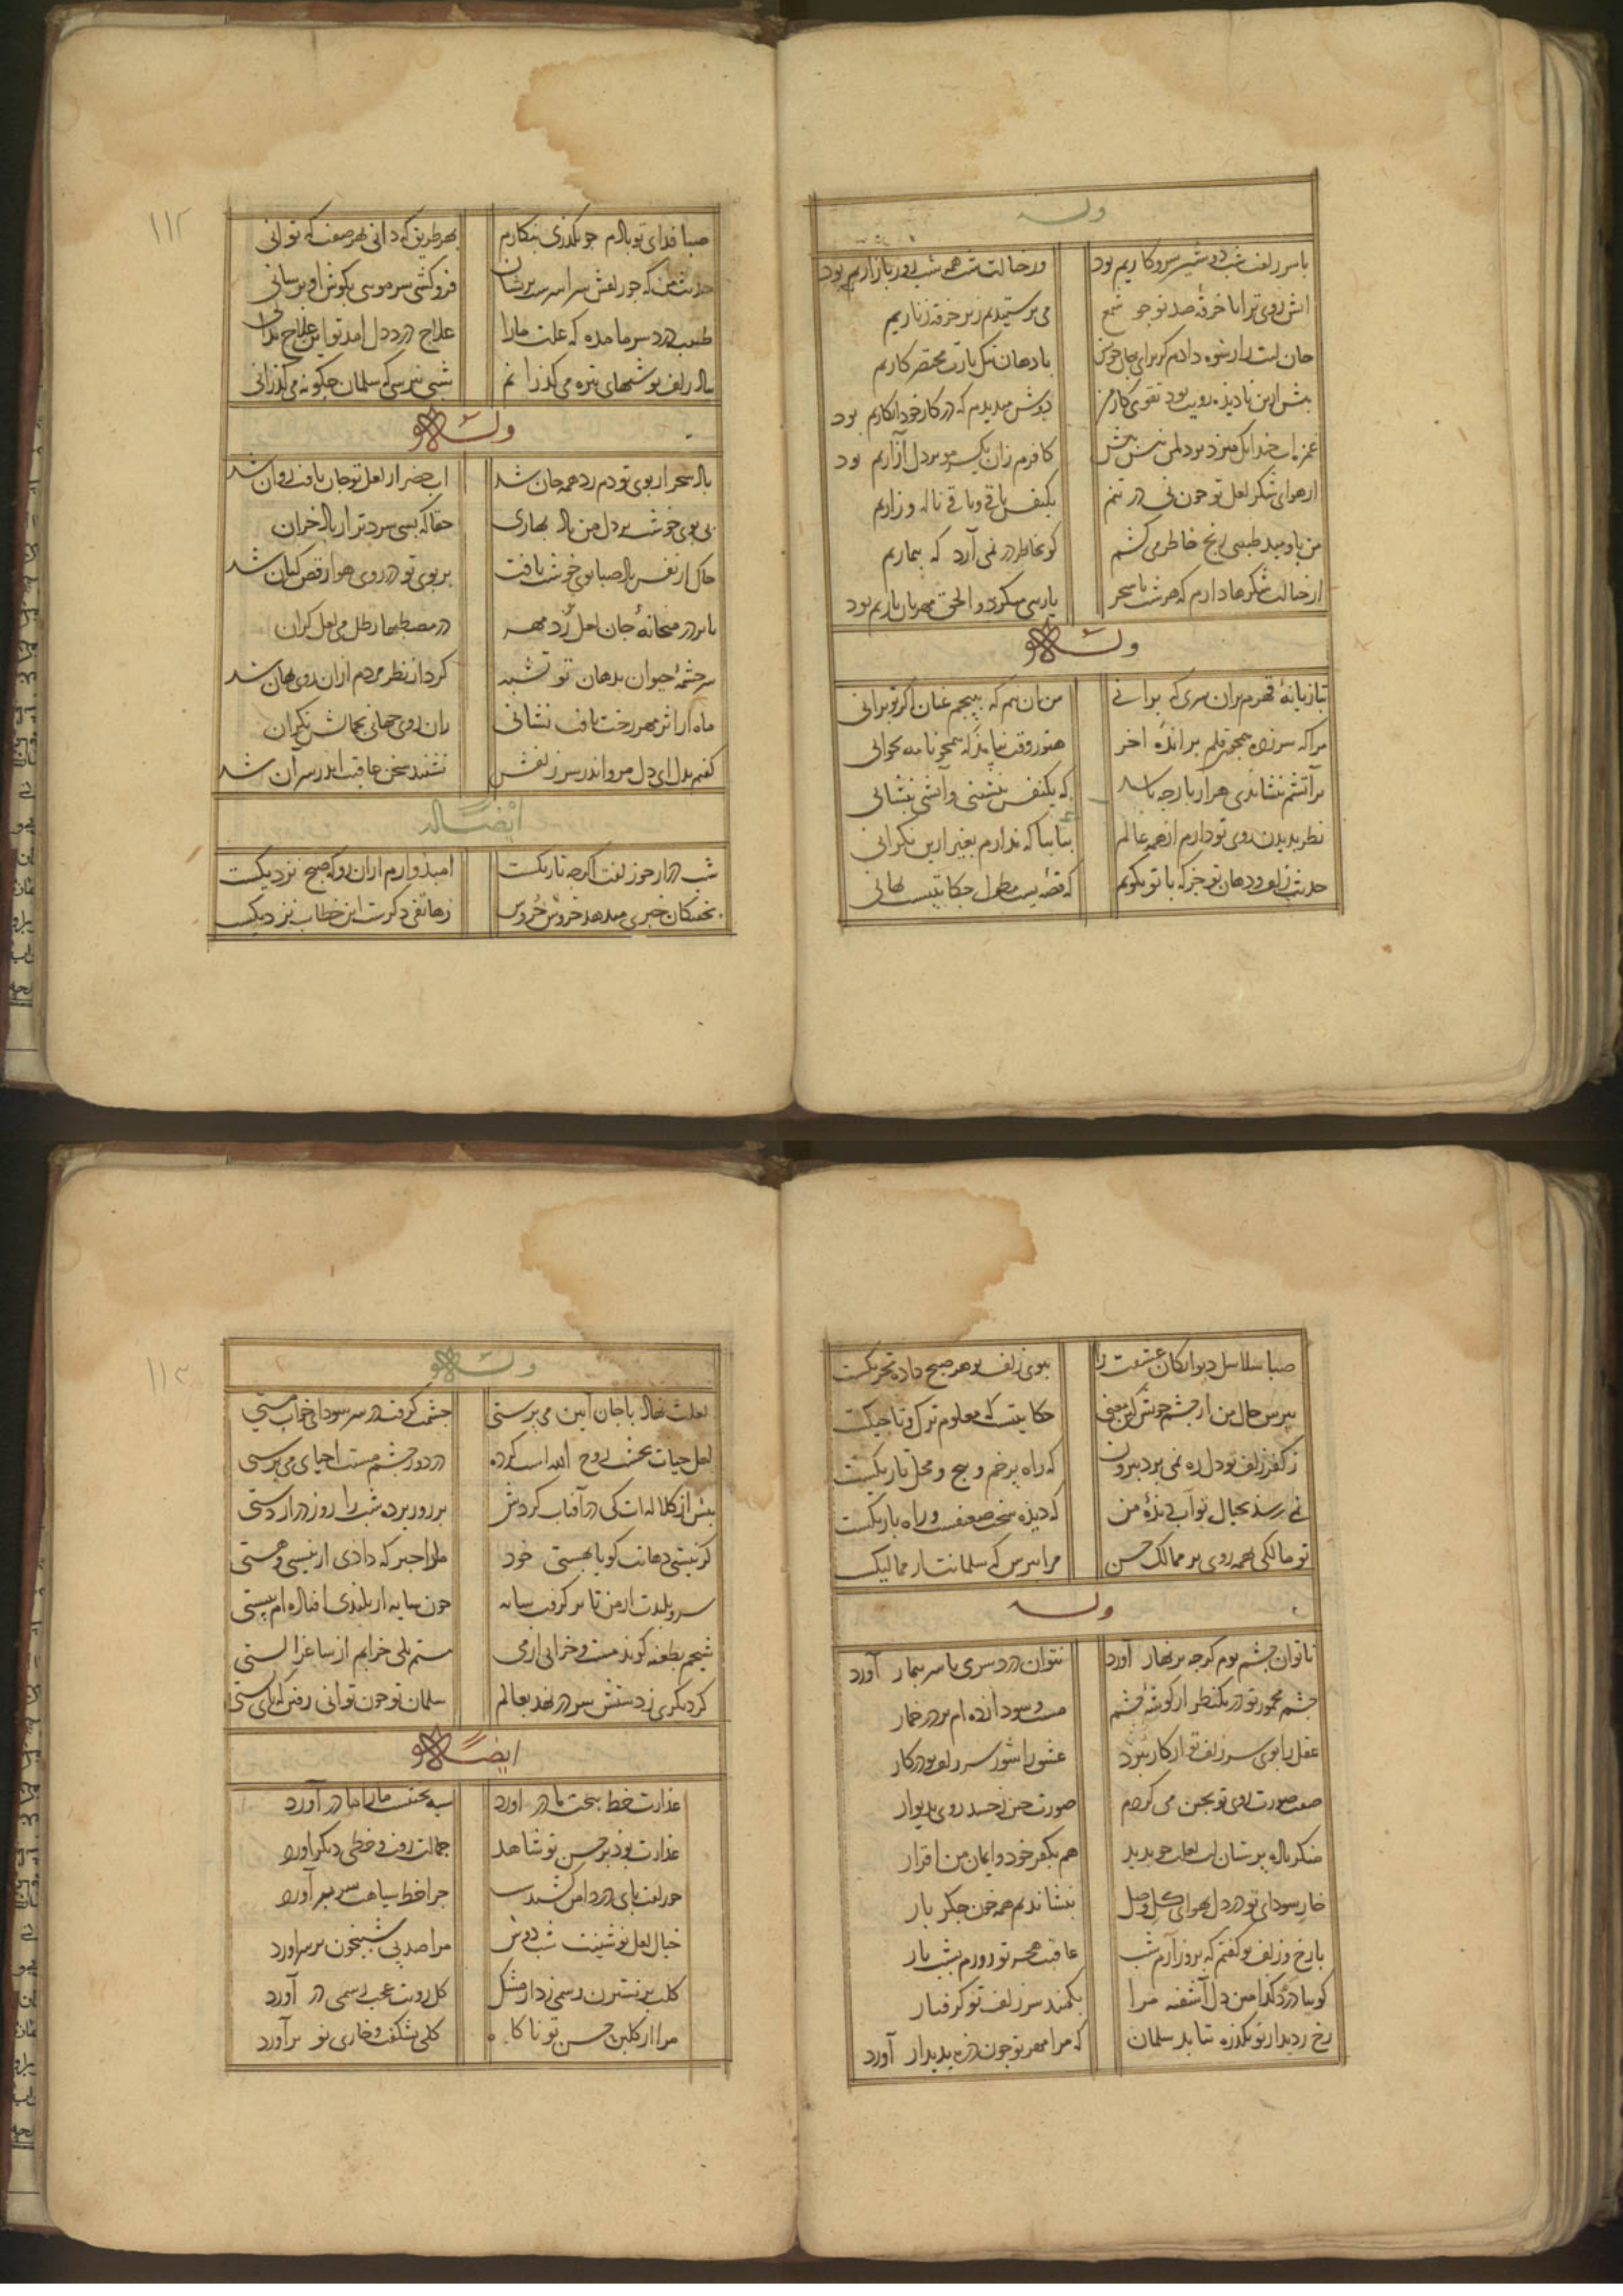 وله
با سر زلفت شب دوشین سر و کاریم بود وز خیالت شب همه شب روز بازاریم بود
روی ترا با خرقهٔ صد تو چو شمع می پرستیدیم زیر خرقه زناریم
جان لبت را رشوه دادم کز برای جان خویش با دهان تنگ یارت مختصر کاریم
پیش ازین نادیده رویت بود تقوی کار من دوش میدیدم که در کار خود انکاریم بود
کافرم زان یکسر مو بر دل آزاریم بود
از هوای شکر لعل تو چون نی در تنم یکنفس باقی و باقی ناله و زاریم
من باومید طبیبی رنج خاطر می کشم کو بخاطر در نمی آرد که بیماریم
از خیالت شکرها دارم که هر شب تا سحر یارسی میکرد و الحق مهربان یاریم بود
وله
بتازیانهٔ قهرم مران سری که برانی من آن نیم که بپیچم عنان اگر تو برانی
مرا که سر زده همچو قلم براندهٔ آخر هنوز وقت نیامد که همچو نامه بخوانی
بر آتشم بنشاندی هزار بار چه باشد که یکنفس بنشینی و آتشی بنشانی
نظر بدیدن روی تو دارم از همه عالم بیا بیا که ندارم بغیر ازین نگرانی
حدیث زلف و دهان تو جز که با تو نگویم که قصه ایست مطول حکایتیست نهانی
صبا فدای تو بادم چو بگذری بنگارم بهر طریق که دانی بهر صفت که توانی
حدیث من که چو زلفش سراسرست پریشان فروکشی سر مویی بگوش او برسانی
طبیب درد سر ما مده که علت ما را علاج درد دل آمد تو این علاج ندانی
بیاد زلف تو شبهای تیره می گذرانم شبی نپرسی که سلمان چگونه می گذرانی
وله
باد سحر از بوی تو دم زد همه جان شد آب خضر از لعل تو جان یافت روان شد
بی بوی خوشت بر دل من باد بهاری حقا که بسی سردتر از باد خزان
خاک از نفس باد صبا بوی خوشت یافت بر بوی تو در روی هوا رقص کنان شد
تا بر در میخانهٔ جان لعل زد مهر در مصطبها رطل می لعل گران
سر چشمهٔ حیوان بدهان تو تشبه کرد از نظر مردم ازان روی نهان شد
ماه از اثر مهر رخت یافت نشانی زان روی جهانی بجمالش نگران
گفتم بدل ای دل مرو اندر سر زلفش نشنید سخن عاقبت اندر سر آن شد
ایضاً له
شب دراز چو زلفت اگرچه تاریکست امیدوارم ازان رو که صبح نزدیکست
بخستگان خبری میدهد خروش خروس زهاتفی دگرست این خطاب نزدیکست
صبا سلاسل دیوانگان عشقت را ببوی زلف تو هر صبح داده تحریکست
بپرس حال من از چشم خویش کین معنی حکایتیست که معلوم ترک و تاجیکست
ز کفر زلف تو دل ره نمی برد بیرون که راه پر خم و پیچ و محل تاریکست
نمی رسد بخیال تو آب دیدهٔ من که دیده سخت ضعیفست و راه باریکست
تو مالکی همه روی بر ممالک حسن مرا بپرس که سلمانت از ممالیکست
وله
ناتوان چشم توم گرچه بزنهار آورد نتوان درد سری با سر بیمار آورد
چشم مخمور تو در یکنظر از گوشهٔ چشم مست و سودا زده ام بر در خمار
عقل را بوی سر زلف تو از کار ببرد عشق را شور سر زلف تو در کار
صفت صورت روی تو بچین می کردم صورت چین ز حسد روی بدیوار
منکر باده پرستان لب لعلت چو بدید هم بکفر خود و ایمان من اقرار
خار سودای تو در دل بهوای گل وصل بنشاندیم همه خون جگر بار
با رخ و زلف تو گفتم که بروز آرم شب عاقبت هجر تو روزم بشب تار
گوییا درد گدا من دل آشفته مرا بکمند سر زلف تو گرفتار
رخ ز دیدار تو یکذره نتابد سلمان که مرا مهر تو چون ذره پدیدار آورد
وله
لعلت نهاد با جان آیین می پرستی چشمت گرفت در سر سودای خواب مستی
لعل حیات بخشت روح الله است کرده در دور چشم مستت احیای می پرستی
بیش از کلاله ات کی در آفتاب گردش بر روز برده شب را روز دراز دستی
گر نیستی دهانت گویا بهستی خود ما را خبر که دادی از نیستی و هستی
سرو بلندت از من تا بر گرفت سایه چون سایه از بلندی افتاده ام بپستی
شیخم بطعنه گوید مست و خرابی آری مستم بلی خرابم از ساغر الستی
گر دیگری ز دستش سر در نهد بعالم سلمان تو چون توانی رفتن که پای بستی
ایضاً
عذارت خط بخت ما در آورد سیه بختیست ما را ما در آورد
عذارت بود بر حسن تو شاهد جمالت رفت و خطی دیگر آورد
چو زلفت پای در دامن کشیدست چرا خط سیاهت سر بر آورد
خیال لعل نوشینت شب دوش مرا صد پی شبیخون بر سر آورد
گلت بر نسترن رسمی زد از مشک گل رویت عجب رسمی در آورد
مرا از گلبن حسن تو ناگاه گلی بشکفت و خاری نو بر آورد
۱۱۲
۱۱۳